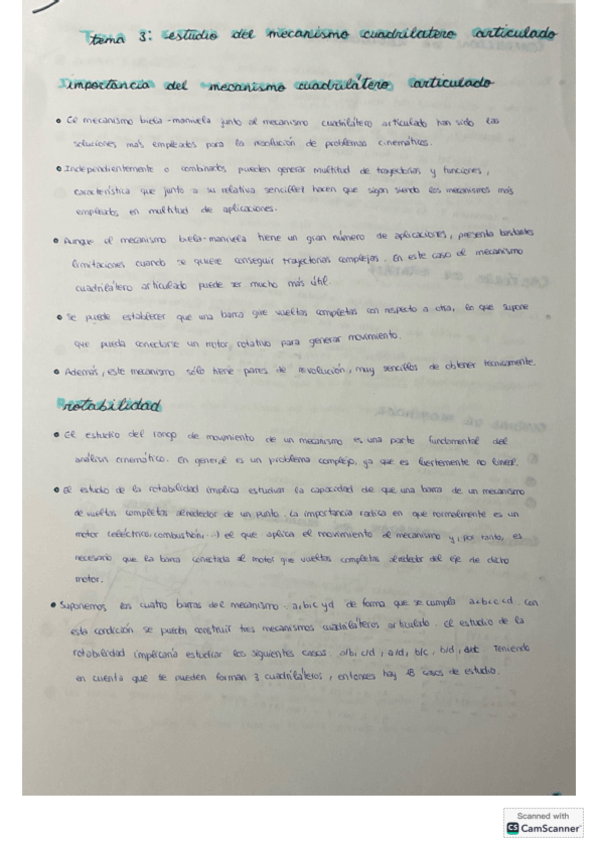 tema 3: estudio del mecanismo cuadrilatero articulado
importancia del mecanismo cuadrilátero articulado
• El mecanismo biela-manivela junto al mecanismo cuadrilátero articulado han sido las
soluciones más empleadas para la resolución de problemas cinemáticos.
• Independientemente o combinados, pueden generar multitud de trayectorias y funciones,
característica que junto a su relativa sencillez hacen que sigan siendo los mecanismos más
empleados en multitud de aplicaciones.
• Aunque el mecanismo biela-manivela tiene un gran número de aplicaciones, presenta bastantes
limitaciones cuando se quiere conseguir trayectorias complejas. En este caso el mecanismo
cuadrilátero articulado puede ser mucho más útil.
• Se puede establecer que una barra gire vueltas completas con respecto a otra, lo que supone
que pueda conectarse un motor rotativo para generar movimiento.
• Además, este mecanismo sólo tiene pares de revolución, muy sencillos de obtener técnicamente.
rotabilidad
• El estudio del rango de movimiento de un mecanismo es una parte fundamental del
análisis cinemático. En general es un problema complejo, ya que es fuertemente no lineal.
• El estudio de la rotabilidad implica estudiar la capacidad de que una barra de un mecanismo
de vueltas completas alrededor de un punto. La importancia radica en que normalmente es un
motor (eléctrico, combustión, ...) el que aplica el movimiento al mecanismo y, por tanto, es
necesario que la barra conectada al motor gire vueltas completas alrededor del eje de dicho
motor.
• Suponemos las cuatro barras del mecanismo a, b, c y d de forma que se cumpla a<b<c<d. Con
esta condición se pueden construir tres mecanismos cuadriláteros articulado. El estudio de la
rotabilidad implicaría estudiar los siguientes casos: a/b, c/d, a/d, b/c, b/d, Teniendo
en cuenta que se pueden forman 3 cuadriláteros, entonces hay 18 casos de estudio.
Scanned with
CS CamScanner